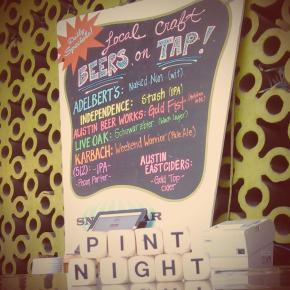 Daily
Specials!
Local Craft
BEERS on TAP!
ADELBERT'S: Naked Nun (wit)
INDEPENDENCE: Stash (IPA)
AUSTIN BEER WORKS: Gold Fist
LIVE OAK: Schwarzbier (black lager)
KARBACH: Weekend Warrior (Pale Ale)
(512): -IPA-
-Pecan Porter-
AUSTIN
EASTCIDERS:
-Gold Top-
cider
PINT
NIGHT